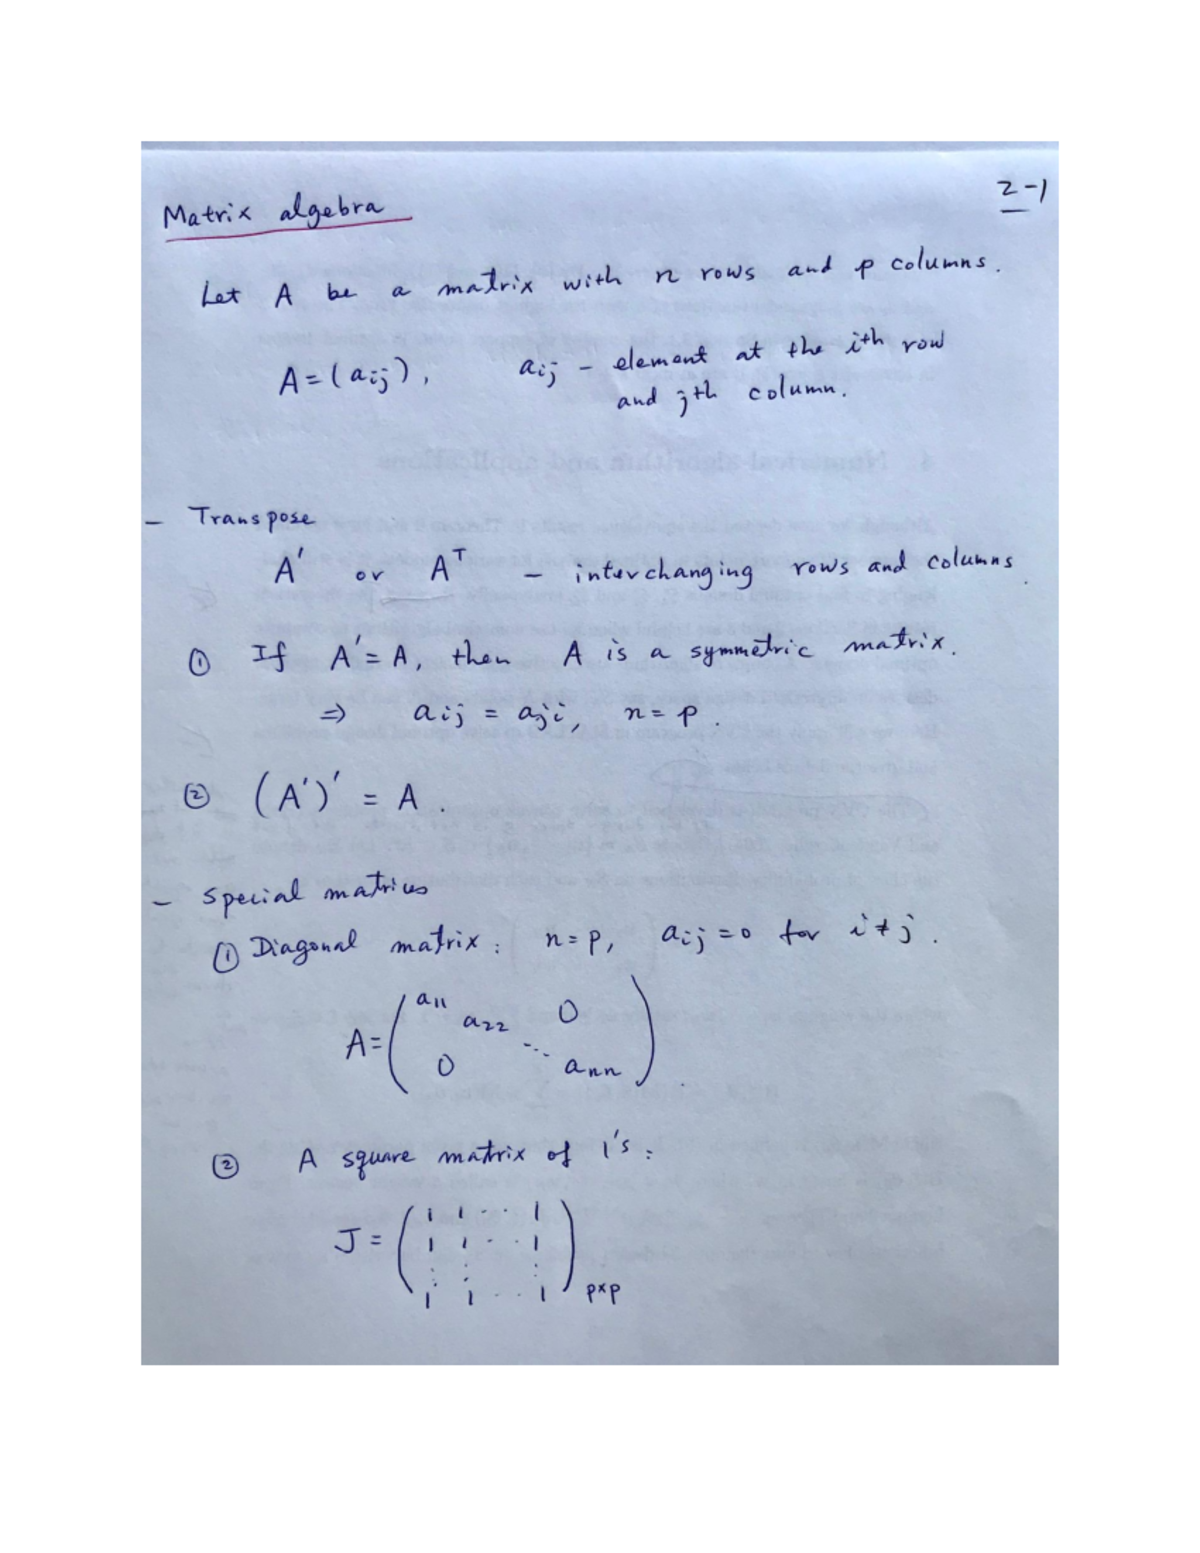 2-1
Matrix algebra
Let A be a matrix with n rows and p columns.
A = (aij), aij - element at the ith row
and jth column.
- Transpose
A' or A^T - interchanging rows and columns.
① If A' = A, then A is a symmetric matrix.
⇒ aij = aji, n = p.
② (A')' = A.
- Special matrices
① Diagonal matrix: n = p, aij = 0 for i ≠ j.
a11 0
a22
A = ( ⋱ )
0 ann
② A square matrix of 1's:
1 1 ... 1
J = ( 1 1 ... 1 )
⋮ ⋮ ⋮
1 1 ... 1 p×p